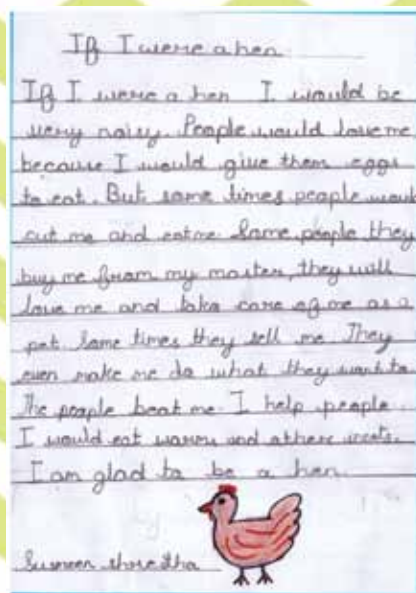 If I were a hen
If I were a hen I would be
very noisy. People would love me
because I would give them eggs
to eat. But some times people would
cut me and eat me Some people they
buy me from my master, they will
love me and take care of me as a
pet. Some times they sell me They
even make me do what they want to
The people beat me. I help people.
I would eat warm and others
I am glad to be a hen.